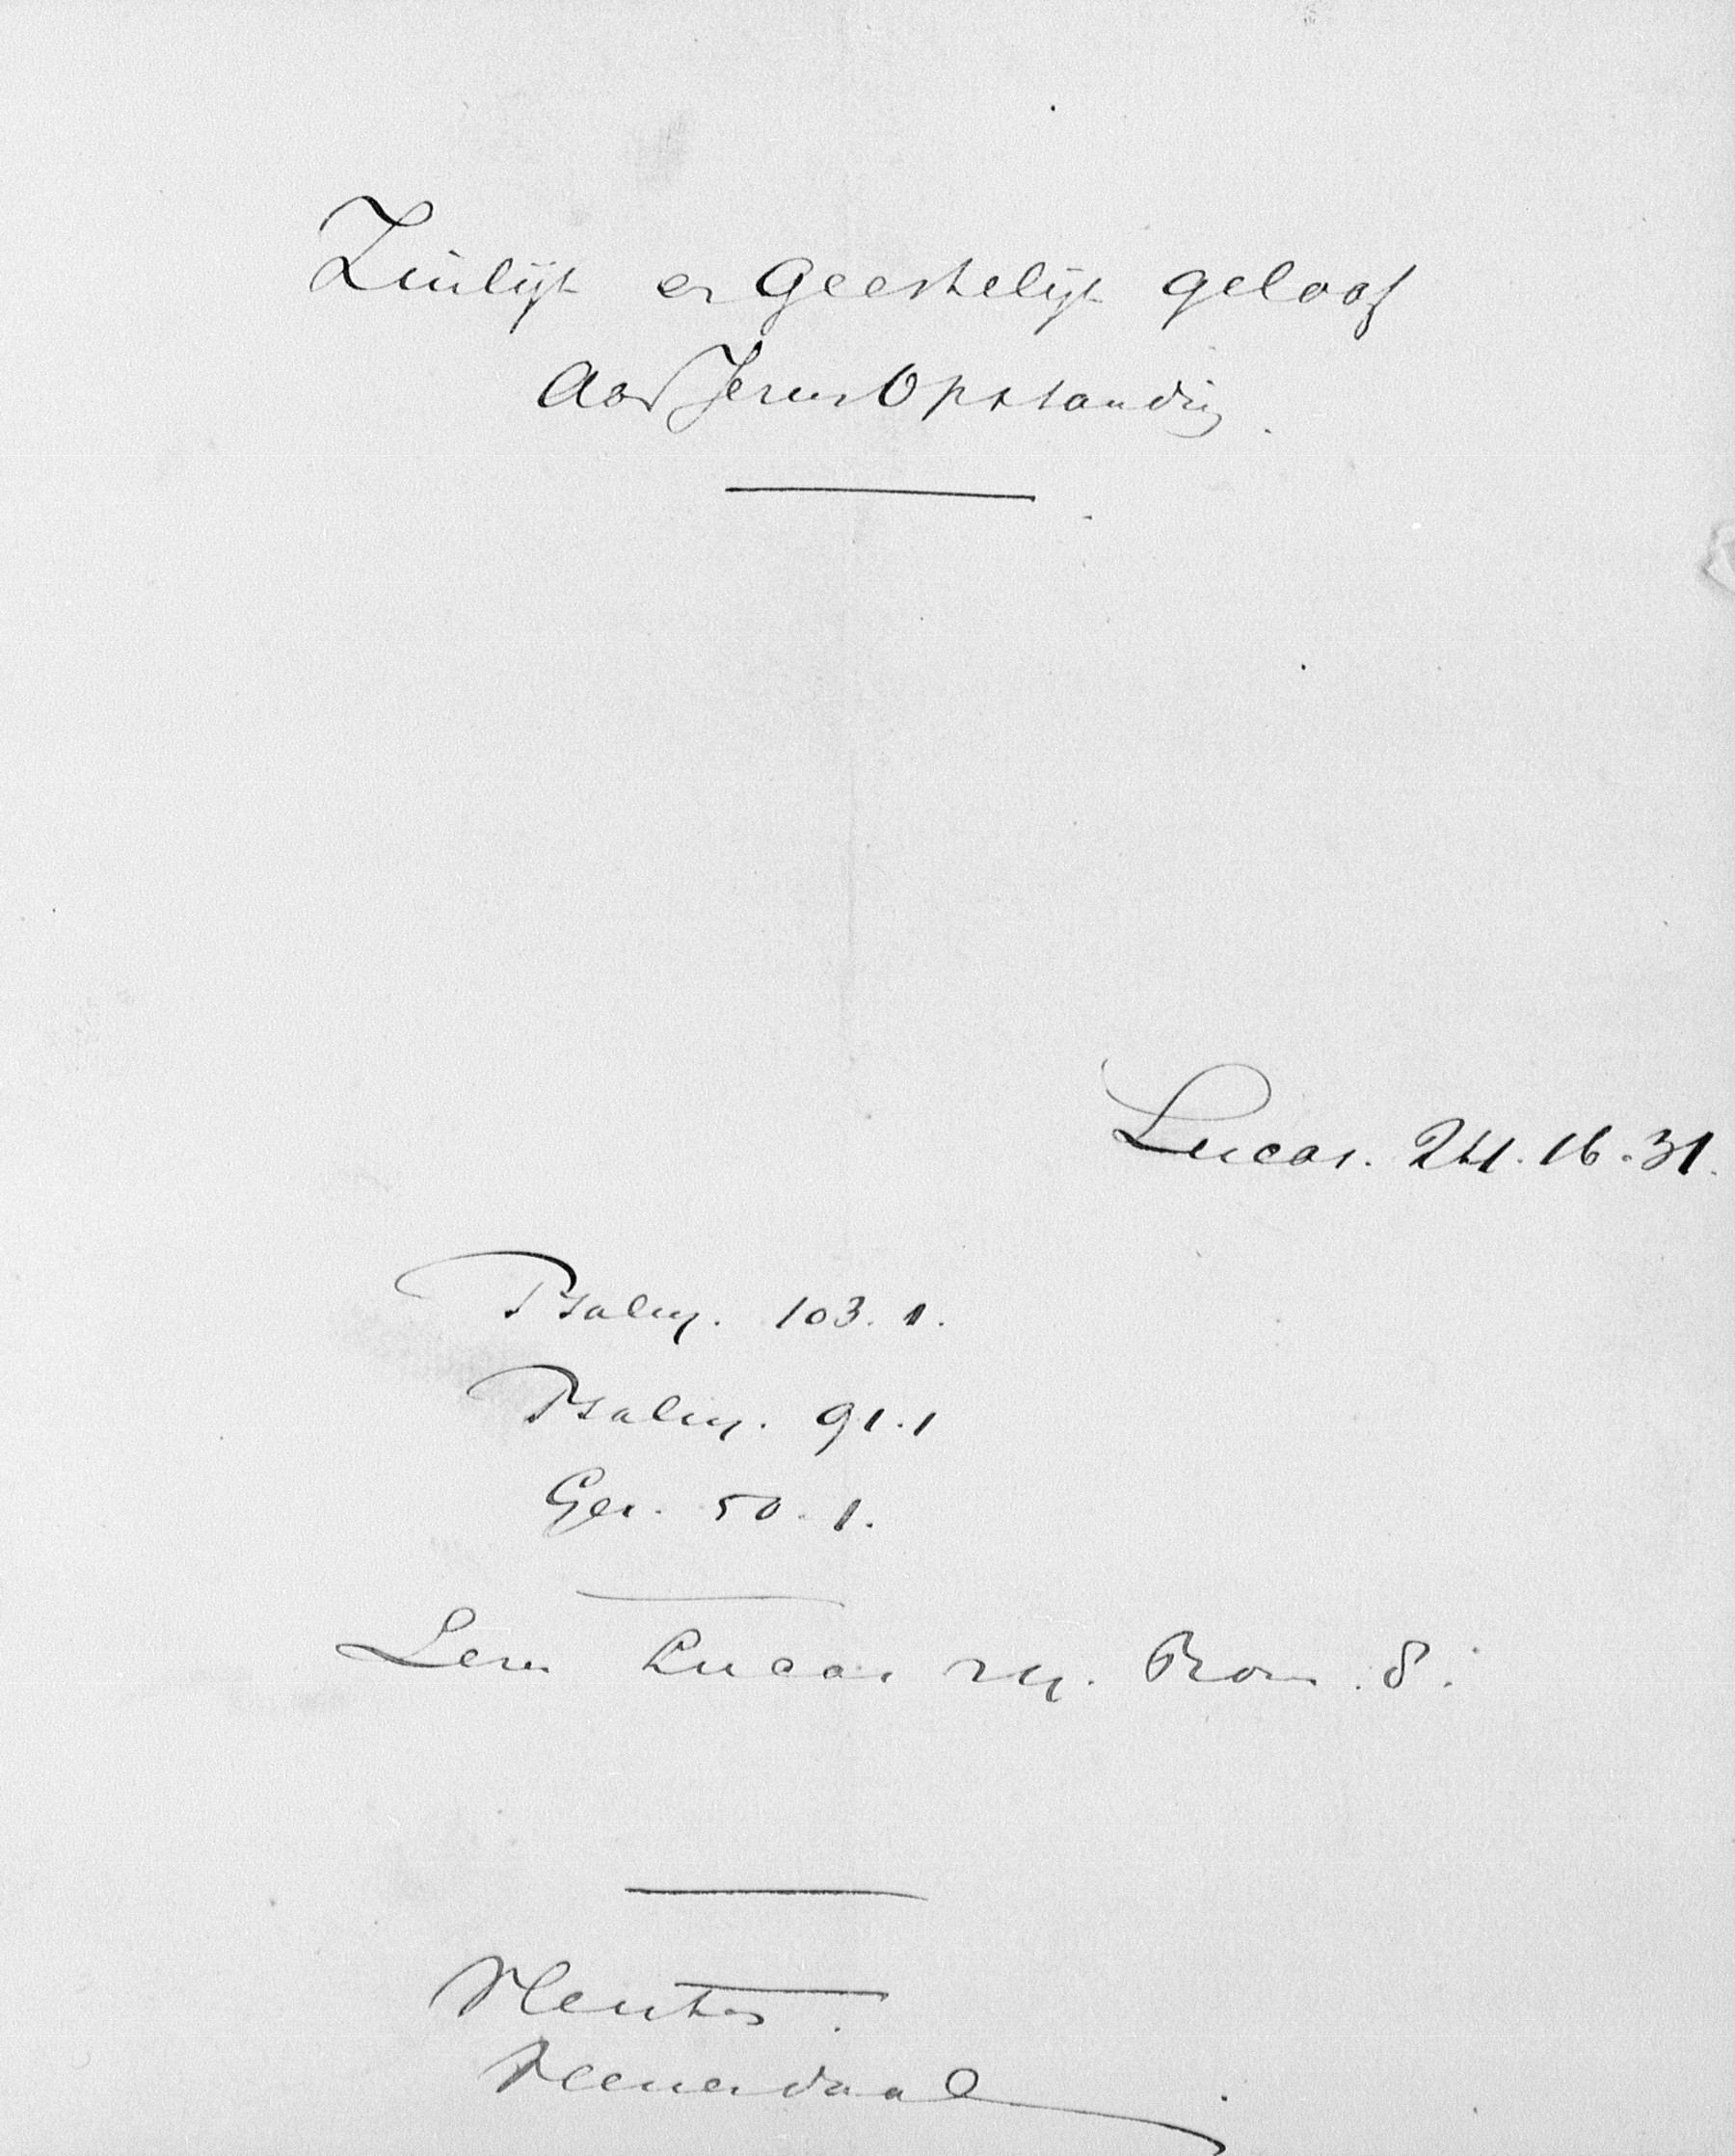 Zinlijk en Geestelijk geloof
aan Jezus Opstanding.
Lucas. 24. 16. 31.
Psalm. 103. 1.
Psalm. 91. 1
Gez. 50. 1.
Lezen Lucas 24. Rom. 8.
Veenendaal